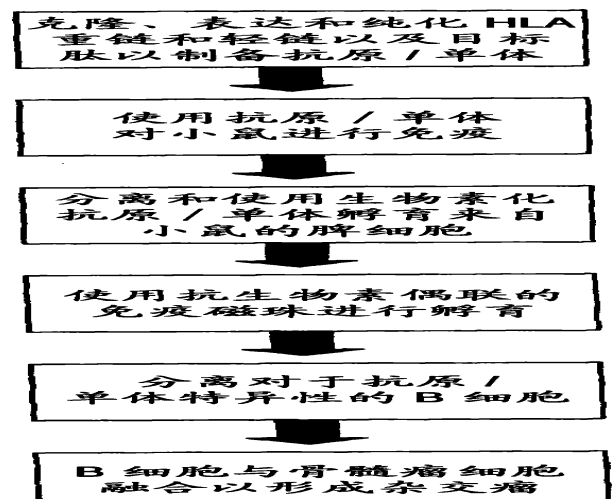 克隆、表达和纯化 HLA
重链和轻链以及目标
肽以制备抗原 / 单体
使用抗原 / 单体
对小鼠进行免疫
分离和使用生物素化
抗原 / 单体孵育来自
小鼠的脾细胞
使用抗生物素偶联的
免疫磁珠进行孵育
分离对于抗原 /
单体特异性的 B 细胞
B 细胞与骨髓瘤细胞
融合以形成杂交瘤